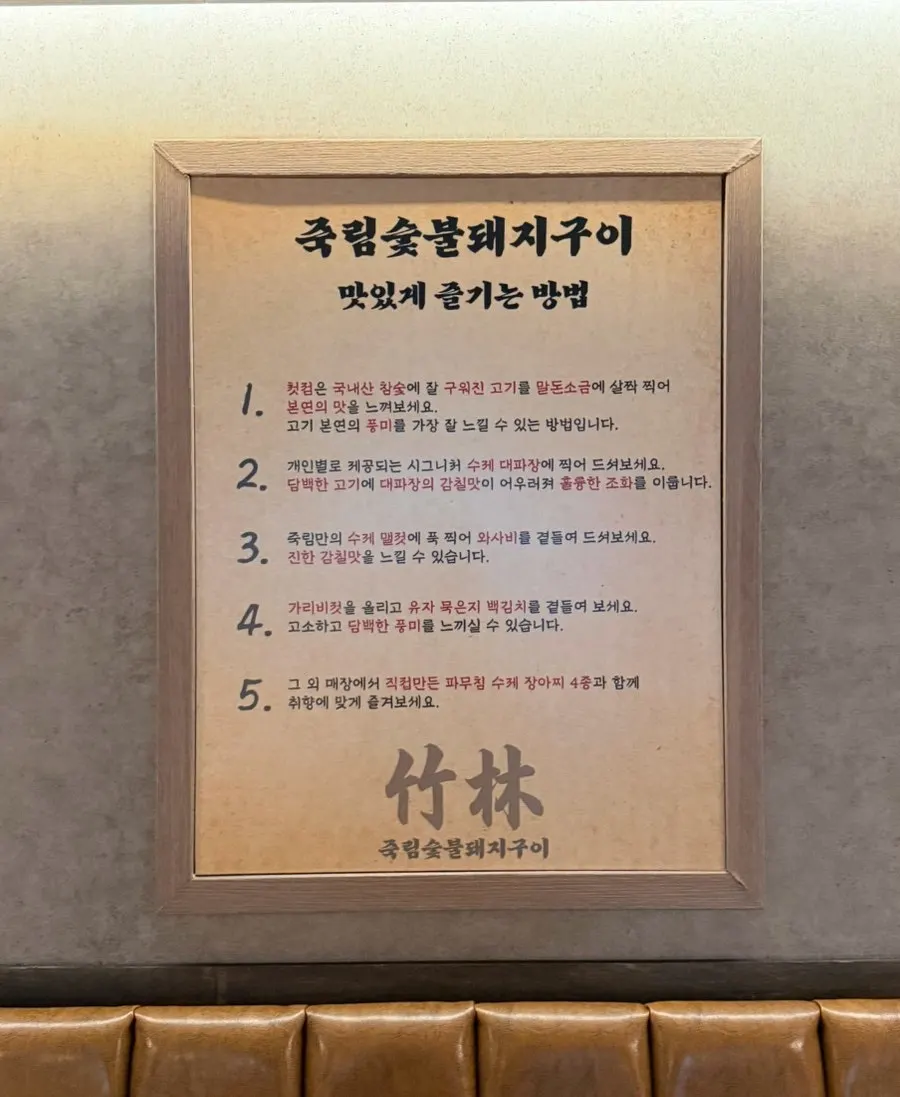 죽림숯불돼지구이
맛있게 즐기는 방법
1. 첫점은 국내산 참숯에 잘 구워진 고기를 말돈소금에 살짝 찍어
본연의 맛을 느껴보세요.
고기 본연의 풍미를 가장 잘 느낄 수 있는 방법입니다.
2. 개인별로 제공되는 시그니처 수제 대파장에 찍어 드셔보세요.
담백한 고기에 대파장의 감칠맛이 어우러져 훌륭한 조화를 이룹니다.
3. 죽림만의 수제 멜젓에 푹 찍어 와사비를 곁들여 드셔보세요.
진한 감칠맛을 느낄 수 있습니다.
4. 가리비젓을 올리고 유자 묵은지 백김치를 곁들여 보세요.
고소하고 담백한 풍미를 느끼실 수 있습니다.
5. 그 외 매장에서 직접만든 파무침 수제 장아찌 4종과 함께
취향에 맞게 즐겨보세요.
竹林
죽림숯불돼지구이